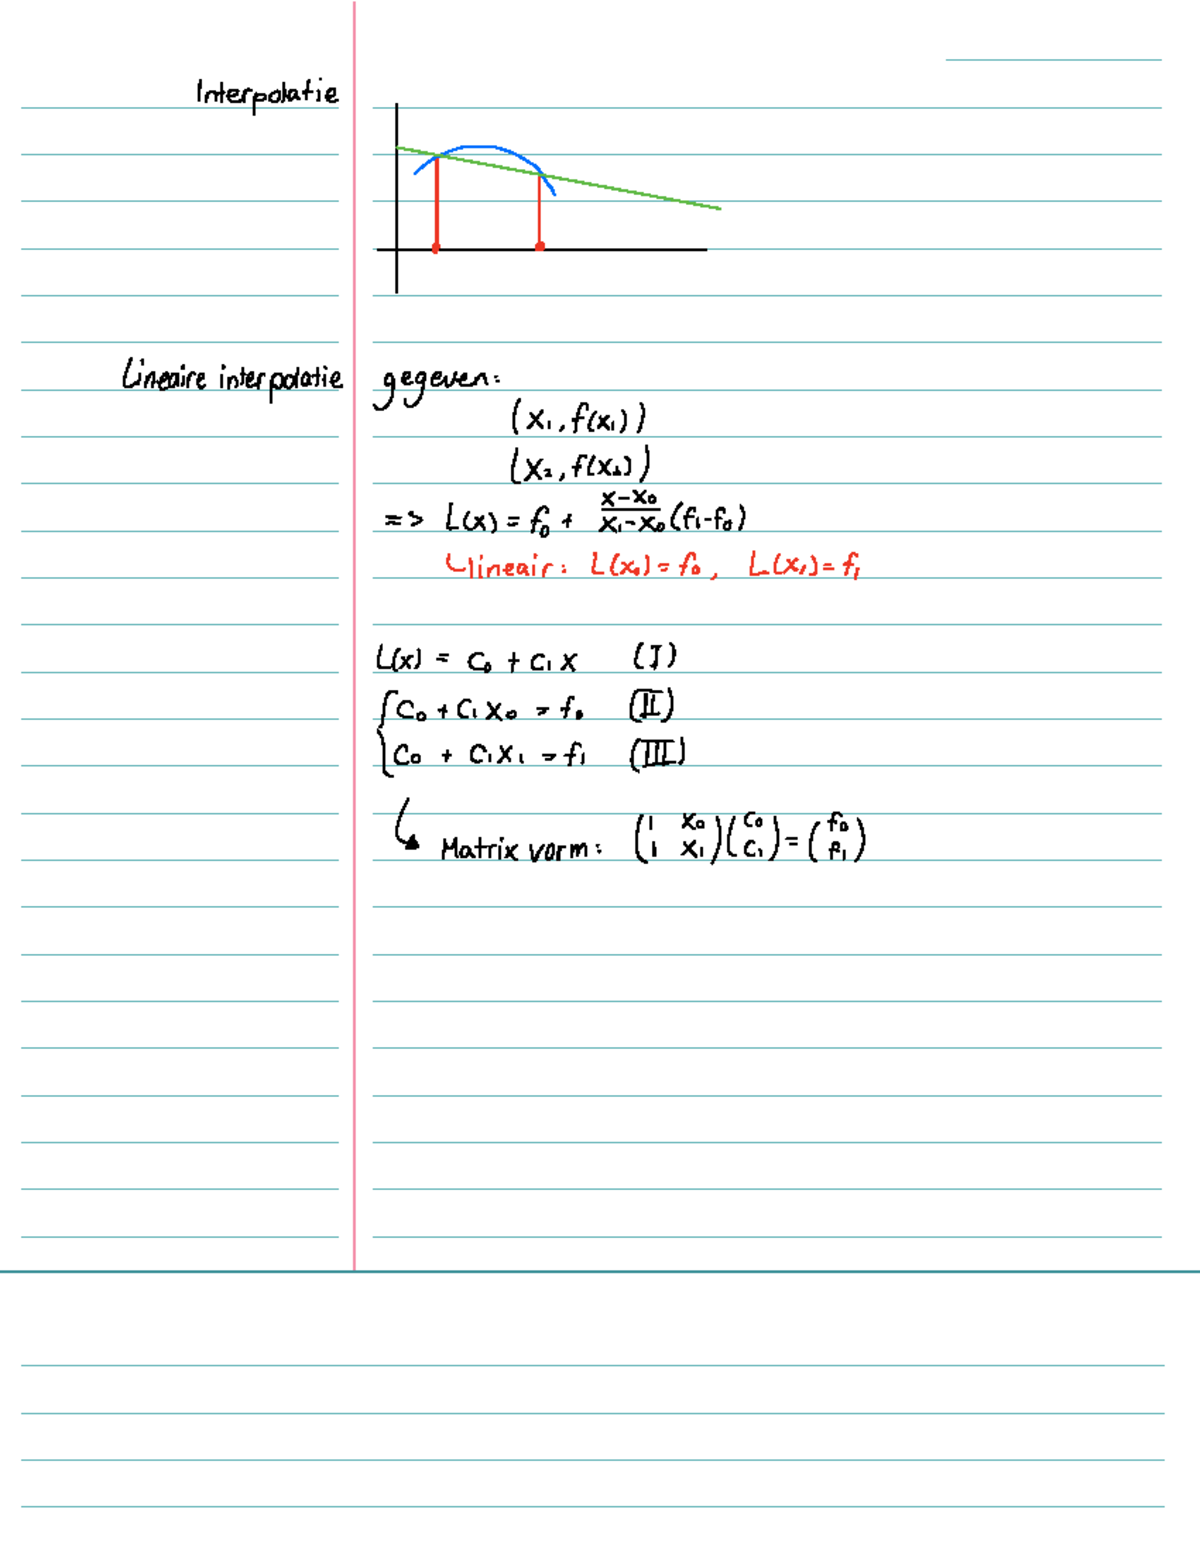 Interpolatie
Lineaire interpolatie
gegeven:
(x₁, f(x₁))
(x₂, f(x₂))
=> L(x) = f₀ + (x-x₀)/(x₁-x₀) (f₁-f₀)
↳lineair: L(x₀) = f₀, L(x₁) = f₁
L(x) = c₀ + c₁x (I)
{ c₀ + c₁x₀ = f₀ (II)
{ c₀ + c₁x₁ = f₁ (III)
↳ Matrix vorm: (1 x₀; 1 x₁)(c₀; c₁) = (f₀; f₁)